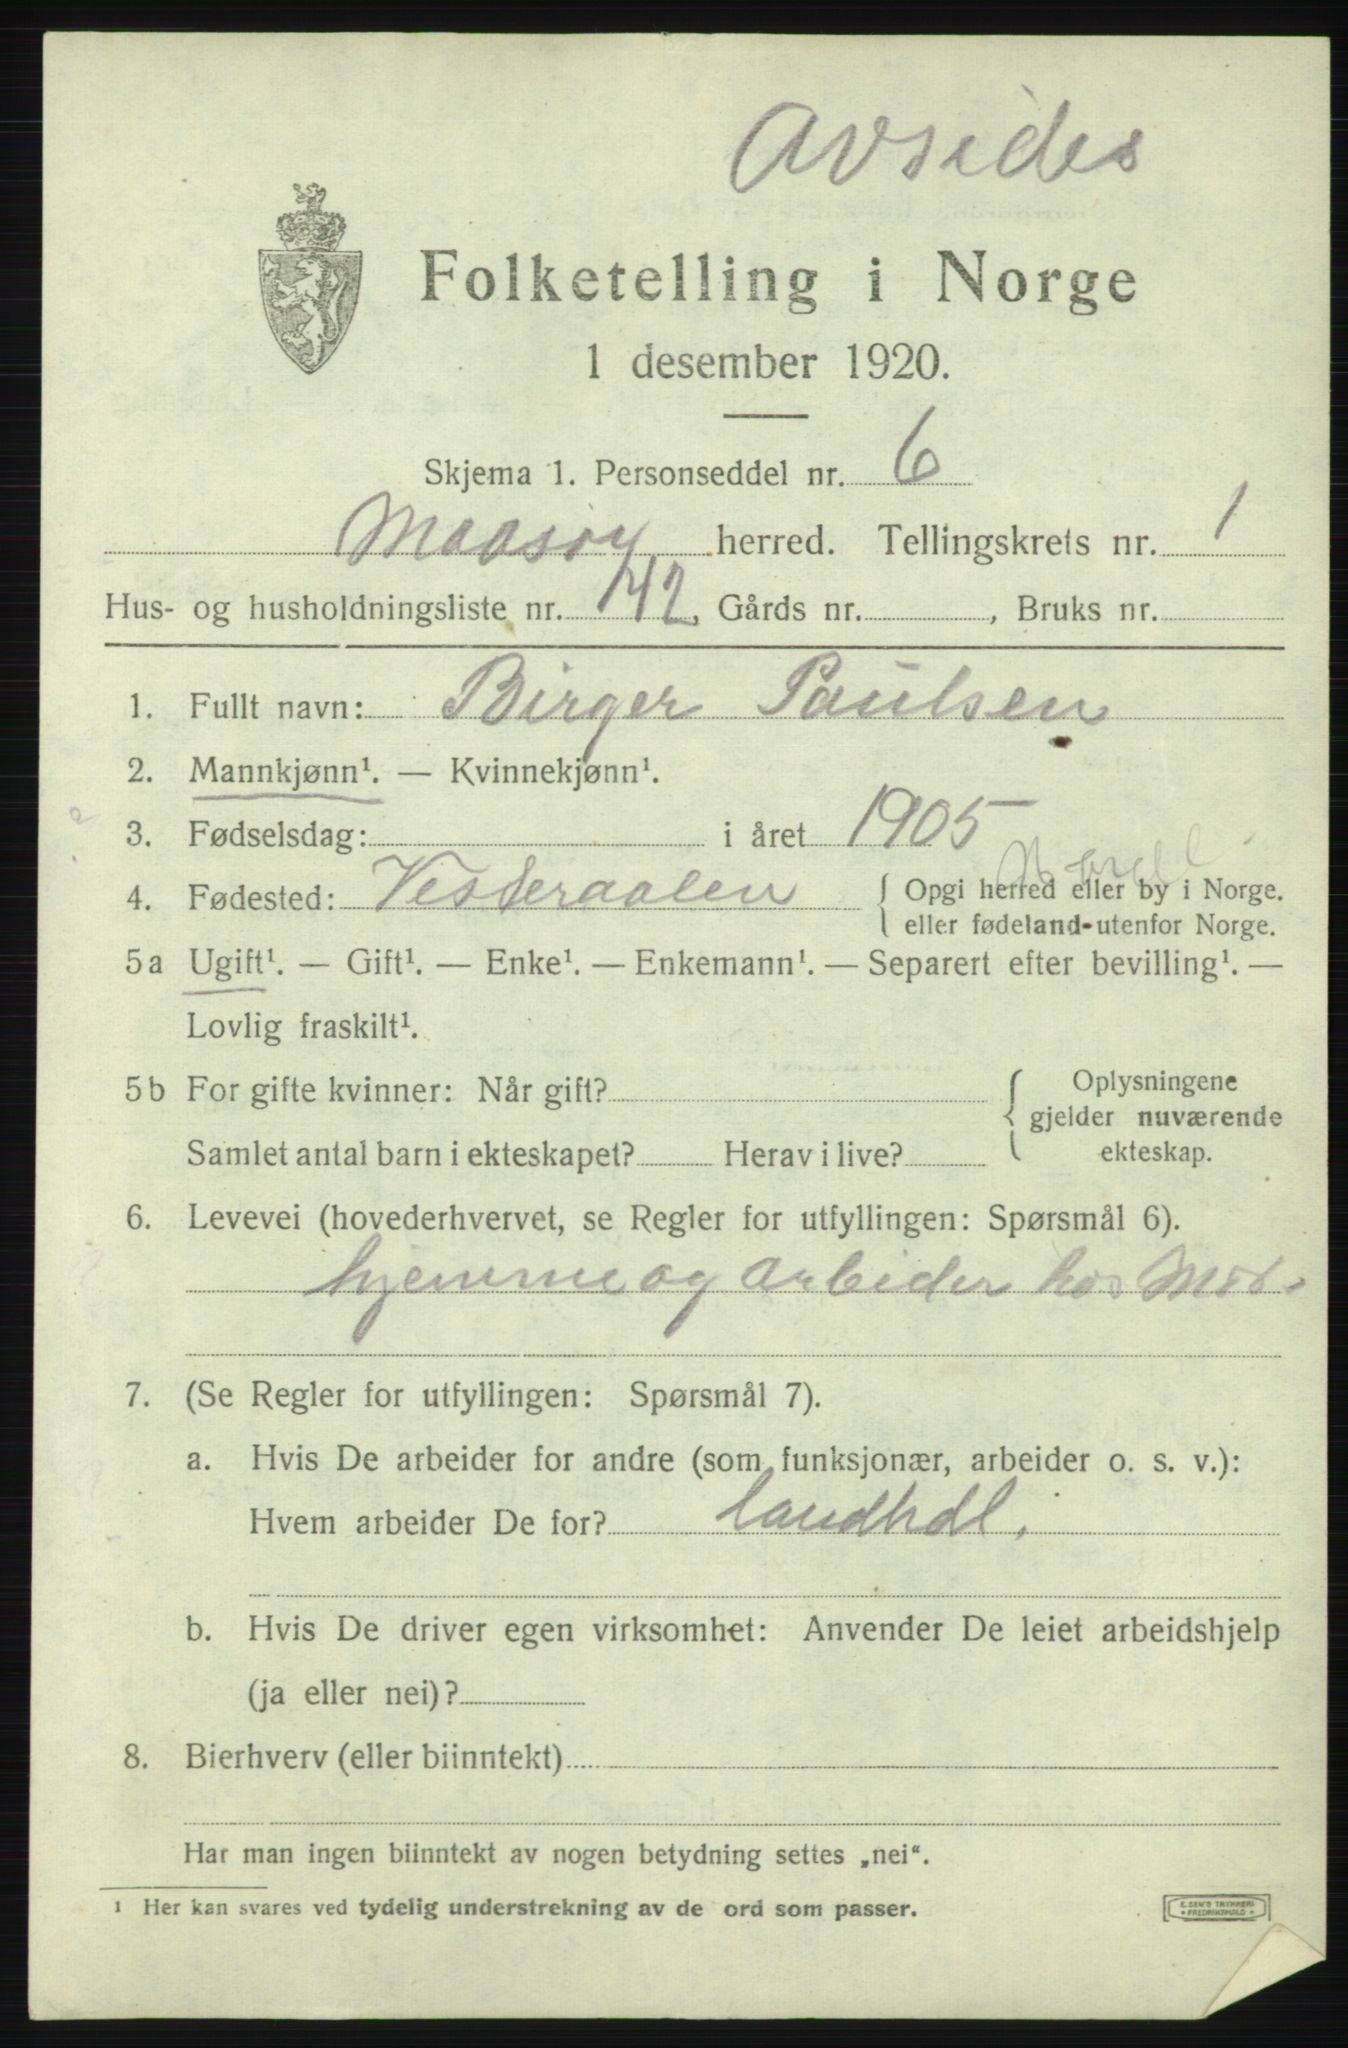 Avsides
Folketelling i Norge
1 desember 1920.
Skjema 1. Personseddel nr. 6
Maasøy herred. Tellingskrets nr. 1
Hus- og husholdningsliste nr. 42, Gårds nr. , Bruks nr.
1. Fullt navn: Birger Paulsen
2. Mannkjønn¹. — Kvinnekjønn¹.
3. Fødselsdag: i året 1905
4. Fødested: Vesteraalen { Opgi herred eller by i Norge.
eller fødeland utenfor Norge.
5a Ugift¹. — Gift¹. — Enke¹. — Enkemann¹. — Separert efter bevilling¹. —
Lovlig fraskilt¹.
5b For gifte kvinner: Når gift? { Oplysningene
gjelder nuværende
ekteskap.
Samlet antal barn i ekteskapet? Herav i live?
6. Levevei (hovederhvervet, se Regler for utfyllingen: Spørsmål 6).
hjemme og arbeider hos
7. (Se Regler for utfyllingen: Spørsmål 7).
a. Hvis De arbeider for andre (som funksjonær, arbeider o. s. v.):
Hvem arbeider De for? landhdl.
b. Hvis De driver egen virksomhet: Anvender De leiet arbeidshjelp
(ja eller nei)?
8. Bierhverv (eller biinntekt)
Har man ingen biinntekt av nogen betydning settes „nei“.
¹ Her kan svares ved tydelig understrekning av de ord som passer.